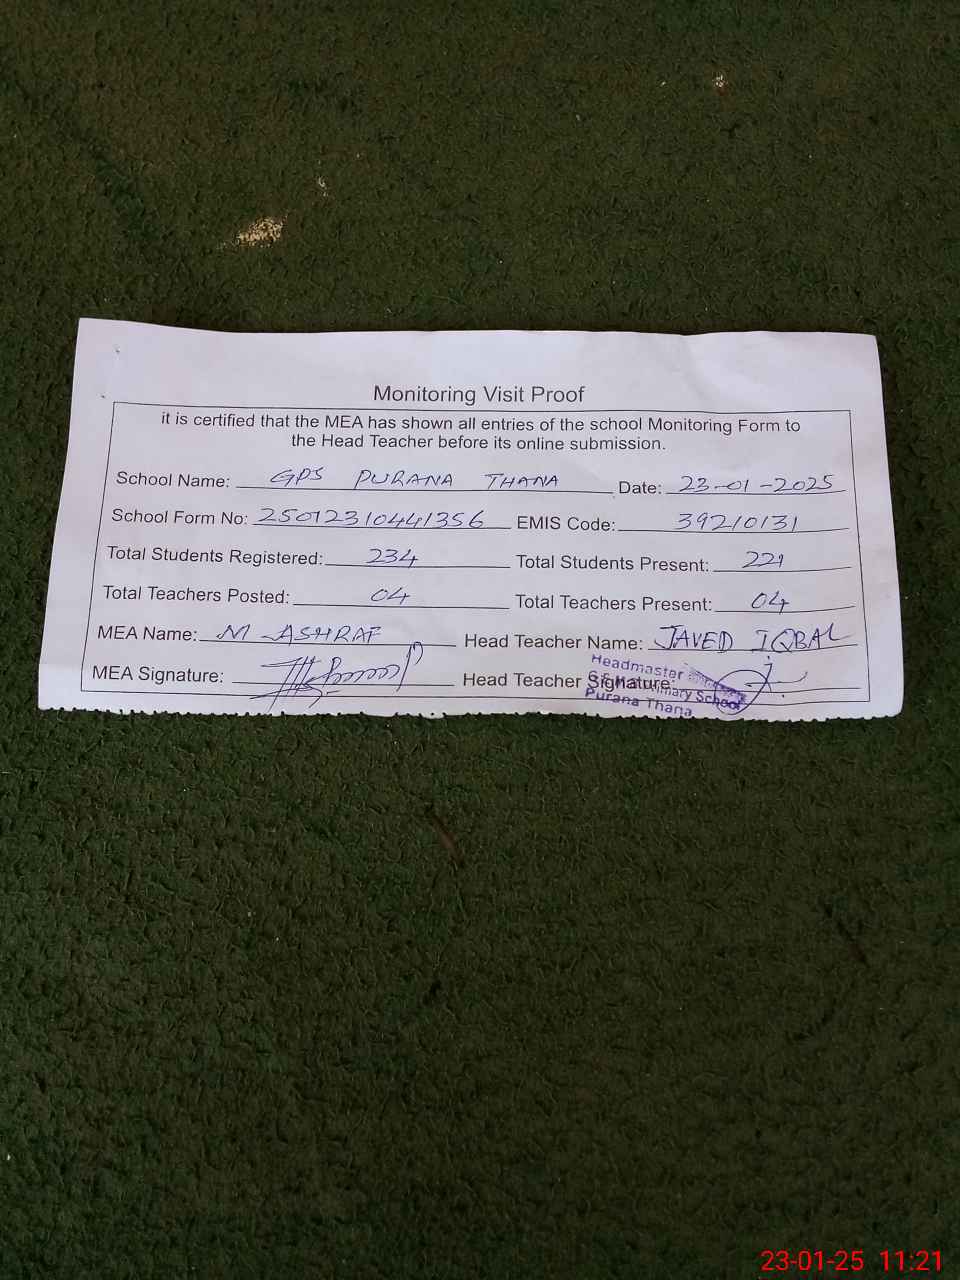 Monitoring Visit Proof
it is certified that the MEA has shown all entries of the school Monitoring Form to
the Head Teacher before its online submission.
School Name: GPS PURANA THANA Date: 23-01-2025
School Form No: 25012310441356 EMIS Code: 39210131
Total Students Registered: 234 Total Students Present: 221
Total Teachers Posted: 04 Total Teachers Present: 04
MEA Name: M ASHRAF Head Teacher Name: JAVED IQBAL
MEA Signature: Head Teacher Signature:
Headmaster
Primary School
Purana Thana
23-01-25 11:21